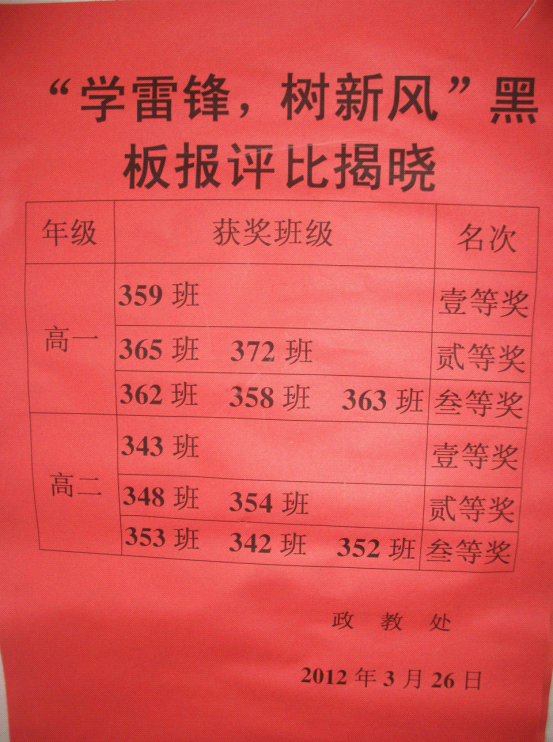 “学雷锋，树新风”黑
板报评比揭晓
年级 获奖班级 名次
高一
359 班 壹等奖
365 班 372 班 贰等奖
362 班 358 班 363 班 叁等奖
高二
343 班 壹等奖
348 班 354 班 贰等奖
353 班 342 班 352 班 叁等奖
政 教 处
2012 年 3 月 26 日